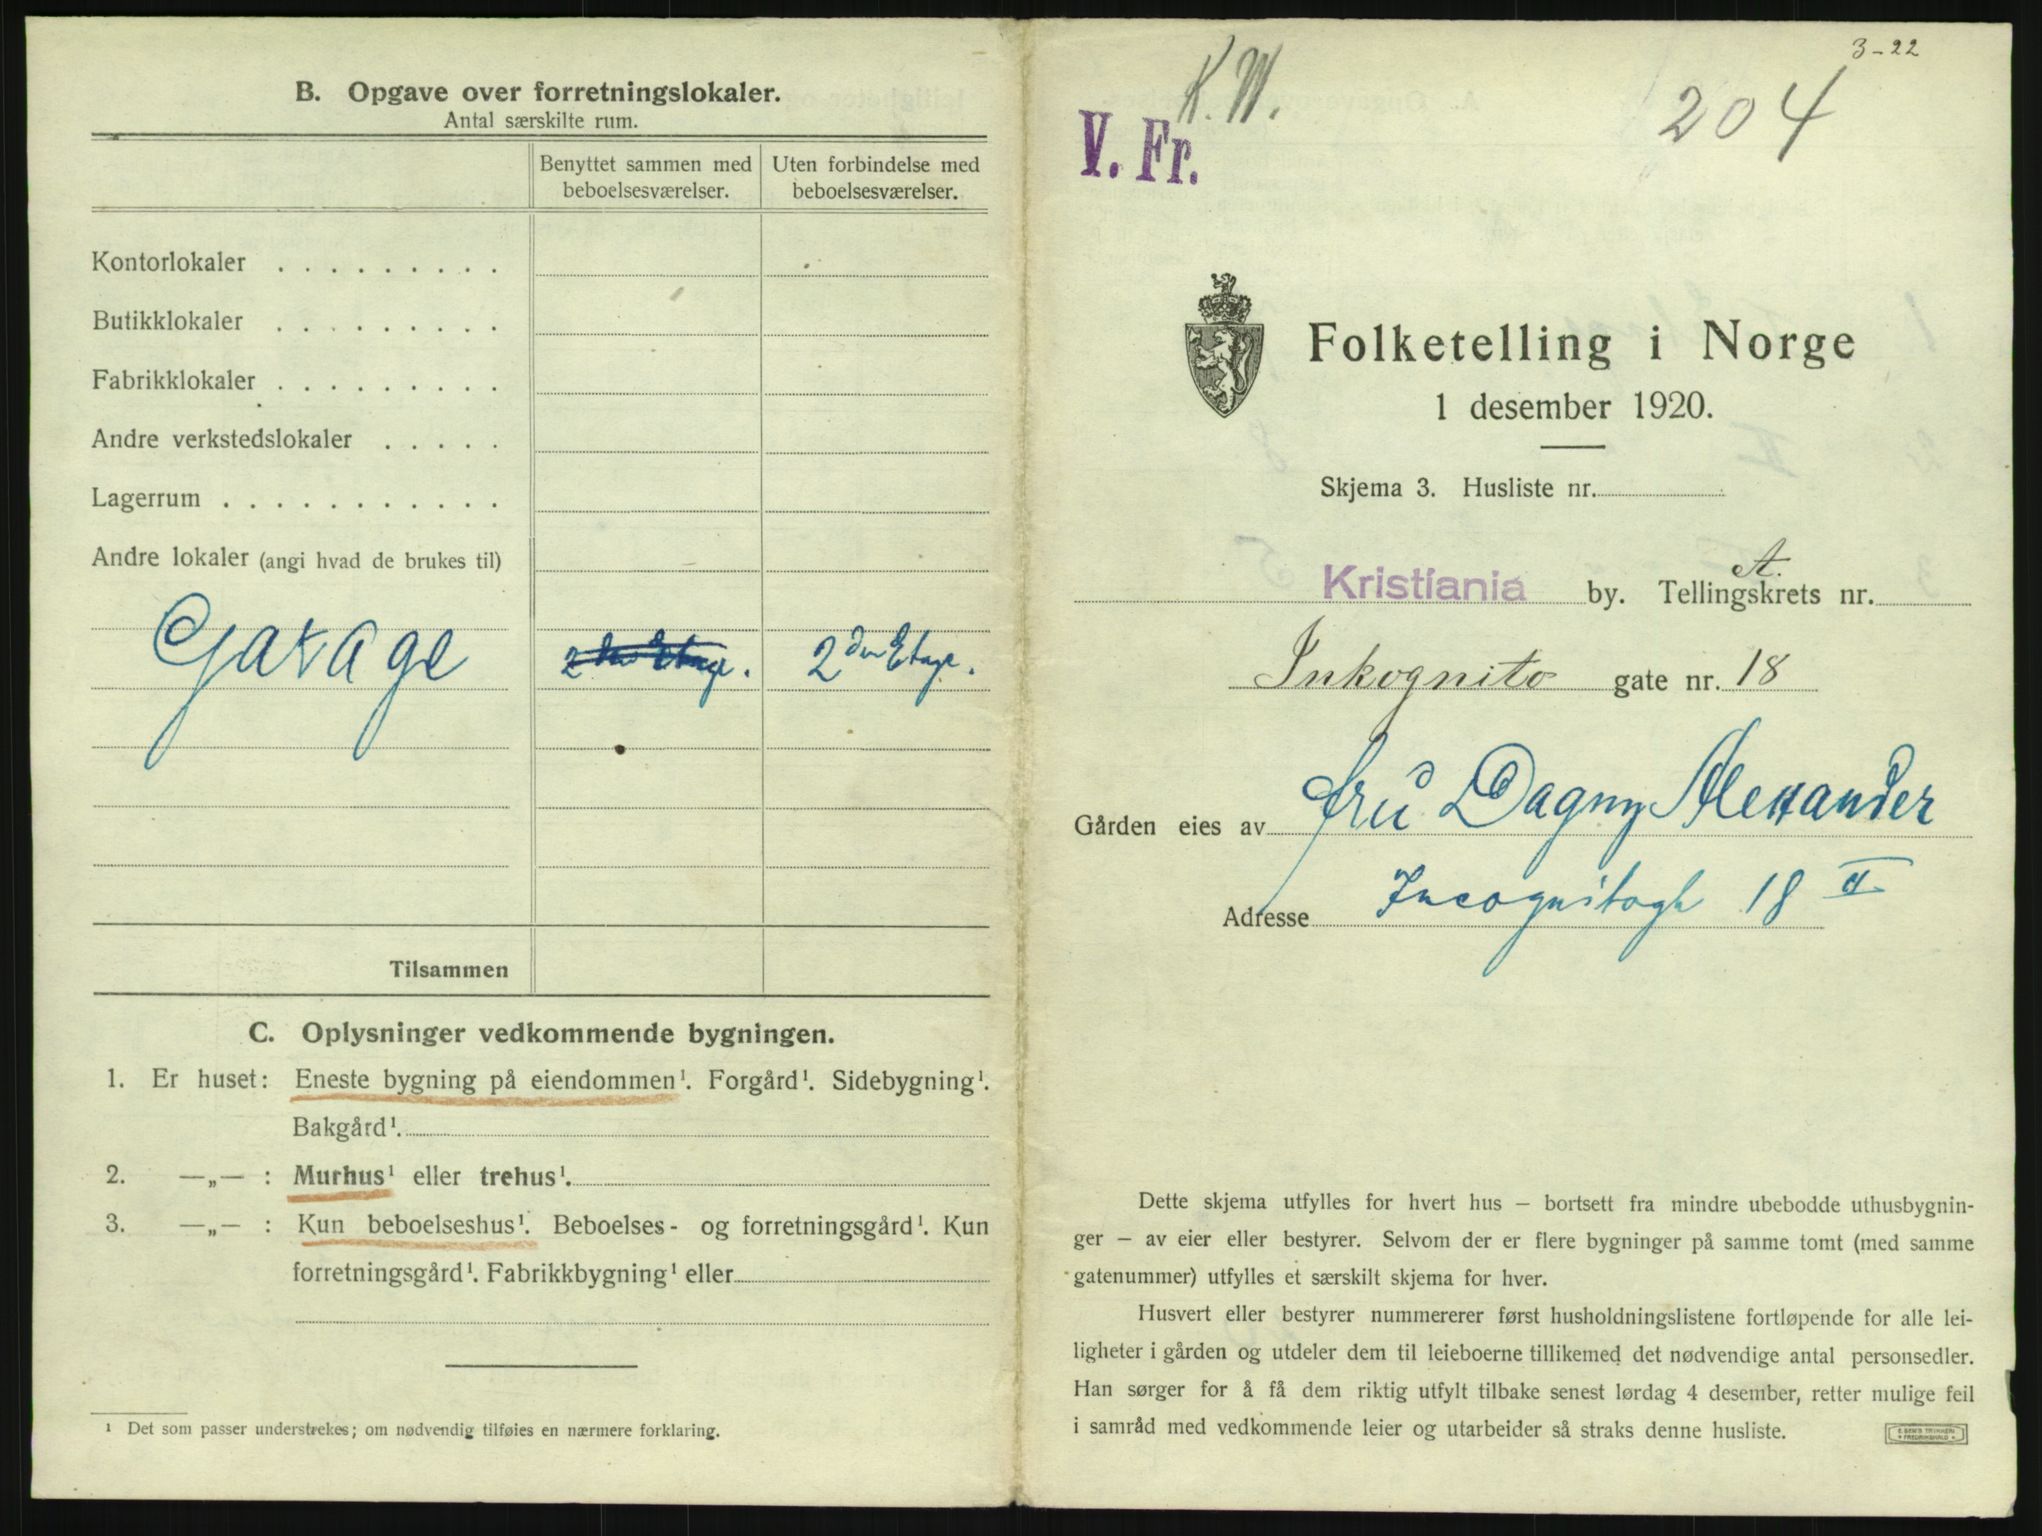 B. Opgave over forretningslokaler.
Antal særskilte rum.
Benyttet sammen med beboelsesværelser.
Uten forbindelse med beboelsesværelser.
Kontorlokaler . . . . . . . . .
Butikklokaler . . . . . . . . .
Fabrikklokaler . . . . . . . . .
Andre verkstedslokaler . . . . .
Lagerrum . . . . . . . . . . .
Andre lokaler (angi hvad de brukes til)
Garage 2den Etage. 2den Etage.
Tilsammen
C. Oplysninger vedkommende bygningen.
1. Er huset: Eneste bygning på eiendommen¹. Forgård¹. Sidebygning¹.
Bakgård¹.
2. —„— : Murhus¹ eller trehus¹.
3. —„— : Kun beboelseshus¹. Beboelses- og forretningsgård¹. Kun
forretningsgård¹. Fabrikkbygning¹ eller
¹ Det som passer understrekes; om nødvendig tilføies en nærmere forklaring.
3-22
K.W.
204
V. Fr.
Folketelling i Norge
1 desember 1920.
Skjema 3. Husliste nr.
A.
Kristiania by. Tellingskrets nr.
Inkognito gate nr. 18
Gården eies av fru Dagny Alexander
Adresse Incognitogt 18 II
Dette skjema utfylles for hvert hus – bortsett fra mindre ubebodde uthusbygnin-
ger – av eier eller bestyrer. Selvom der er flere bygninger på samme tomt (med samme
gatenummer) utfylles et særskilt skjema for hver.
Husvert eller bestyrer nummererer først husholdningslistene fortløpende for alle lei-
ligheter i gården og utdeler dem til leieboerne tillikemed det nødvendige antal personsedler.
Han sørger for å få dem riktig utfylt tilbake senest lørdag 4 desember, retter mulige feil
i samråd med vedkommende leier og utarbeider så straks denne husliste.